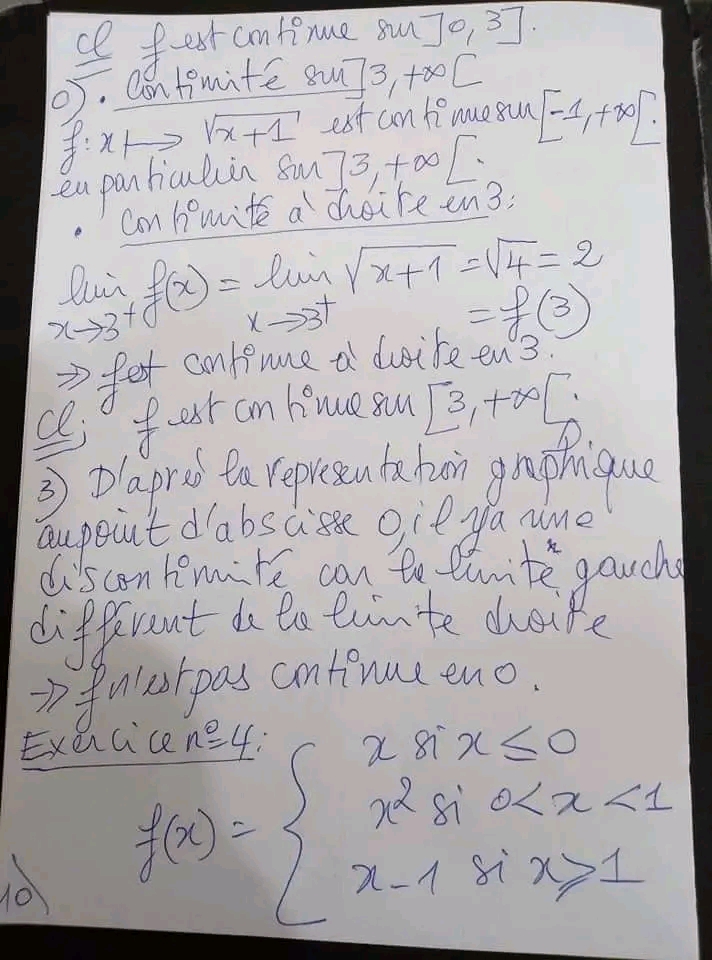 Cl f est continue sur ]0, 3].
0). Continuité sur ]3, +∞[
f: x ↦ √(x+1) est continue sur [-1, +∞[.
en particulier sur ]3, +∞[.
. Continuité à droite en 3:
lim f(x) = lim √(x+1) = √4 = 2
x→3⁺ x→3⁺ = f(3)
⇒ f est continue à droite en 3.
Cl; f est continue sur [3, +∞[;
3) D'après la representation graphique
au point d'abscisse 0, il y a une
discontinuité car la limite gauche
différent de la limite droite
→ f n'est pas continue en 0.
Exercice n°4:
x si x ≤ 0
f(x) = { x² si 0<x<1
x-1 si x⩾1
10)